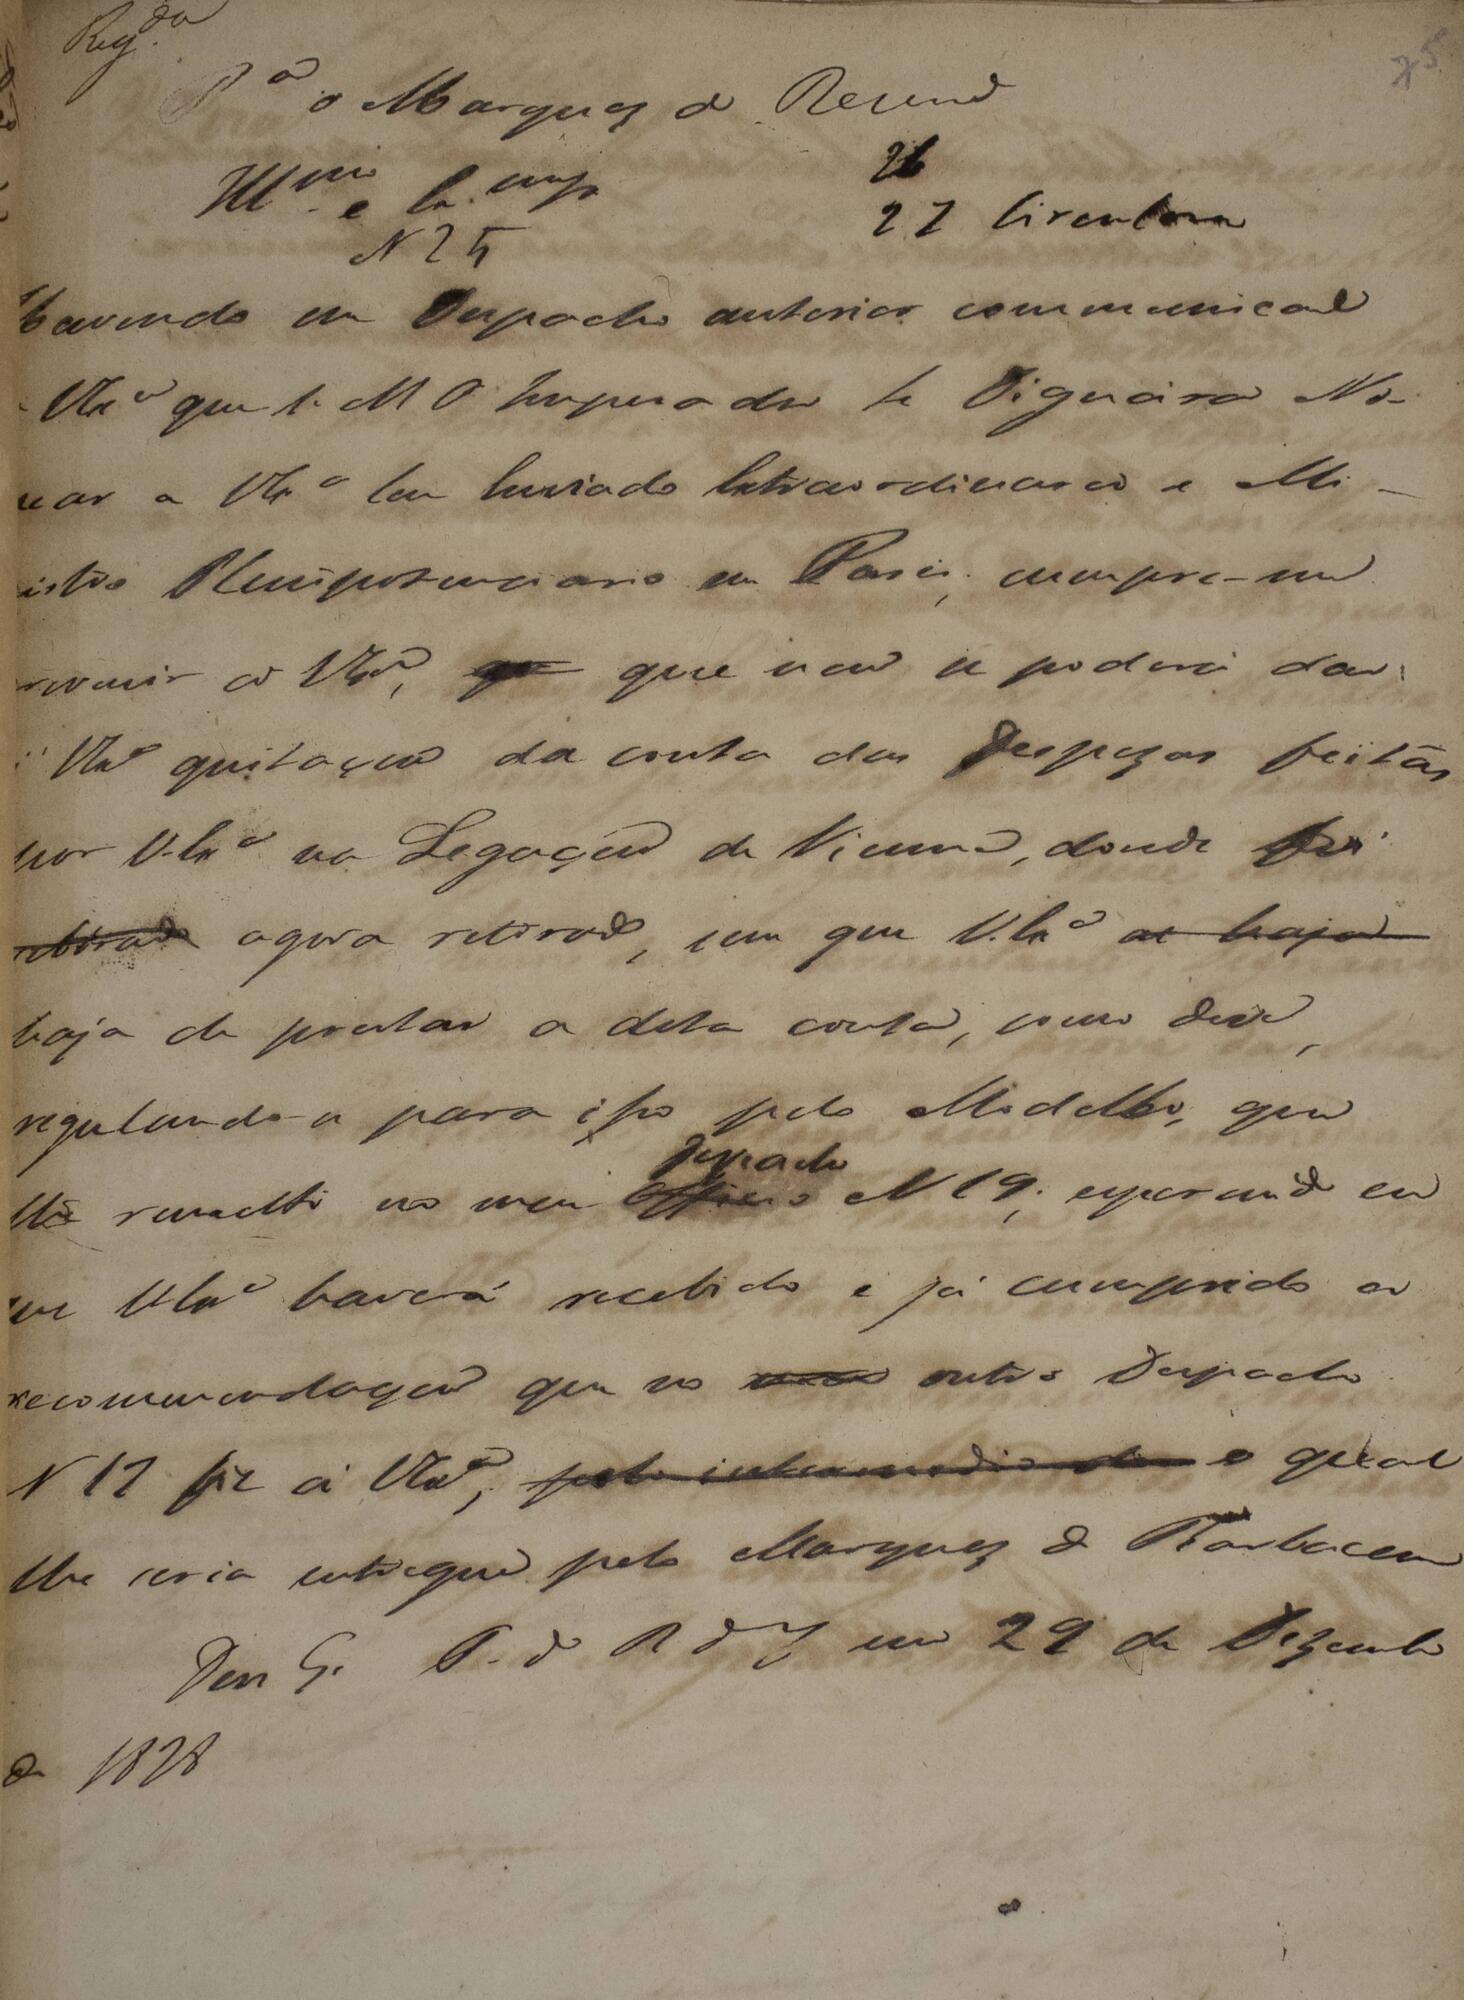 Reg.da
75
P.a o Marquez de Resende
Ill.mo e Ex.mo Sñr
26
27 Circulares
N 25
Havendo em Despacho anterior communicado
a VEx.a que S. M O Imperador Se Dignára No-
mear a VEx.a Seu Enviado Extraordinario e Mi-
nistro Plenipotenciario em Paris, cumpre-me
prevenir a VEx.a, que não se poderá dar
á VEx.a quitação da conta das Despezas feitas
por V.Ex.a na Legação de Vienna, donde foi
retirado agora retirado, sem que V.Ex.a haja
haja de prestar a dita conta, como deve,
regulando-se para isso pelo Modello, que
lhe remetti no meu Despacho N 19; esperando eu
que V.Ex.a haverá recebido e já cumprido a
recomendação que no outro Despacho
N 17 fiz á VEx.a, pelo intermedio do o qual
lhe seria entregue pelo Marquez de Barbacena
Deos G.e P. do R de J. em 29 de Dezembro
de 1828